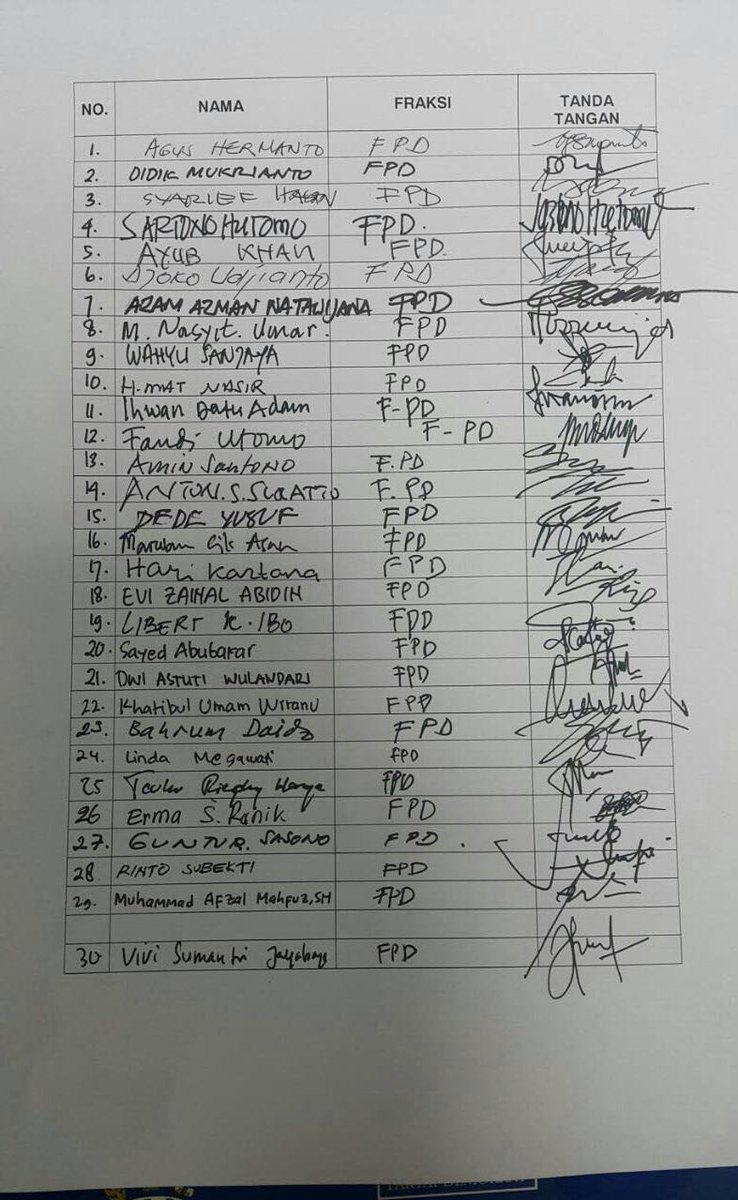 NO. NAMA FRAKSI TANDA TANGAN
1. AGUS HERMANTO FPD
2. DIDIK MUKRIANTO FPD
3. SYARIEF HASAN FPD
4. SARTONO HUTOMO FPD. SARTONO HUTOMO
5. AYUB KHAN FPD.
6. DJOKO Udjianto FPD
7. AZAM AZMAN NATAWIJANA FPD
8. M. Nasyit. Umar. FPD
9. WAHYU SANJAYA FPD
10. H. MAT NASIR FPD
11. Ihwan Datu Adam F-PD
12. Fandi Utomo F-PD
13. Amin Santono F.PD
14. ANTON.S. F.PD
15. DEDE YUSUF FPD
16. FPD
17. Hari Kartana FPD
18. EVI ZAINAL ABIDIN FPD
19. LIBERT K. IBO FPD
20. Sayed Abubakar FPD
21. DWI ASTUTI WULANDARI FPD
22. Khatibul Umam Wiranu FPD
23. Bahrum FPD
24. Linda Megawati FPD
25 FPD
26 Erma S. Ranik FPD
27. GUNTUR. SASONO FPD.
28 RINTO SUBEKTI FPD
29. Muhammad Afzal Mahfuz, SH FPD
30 Vivi Sumantri FPD